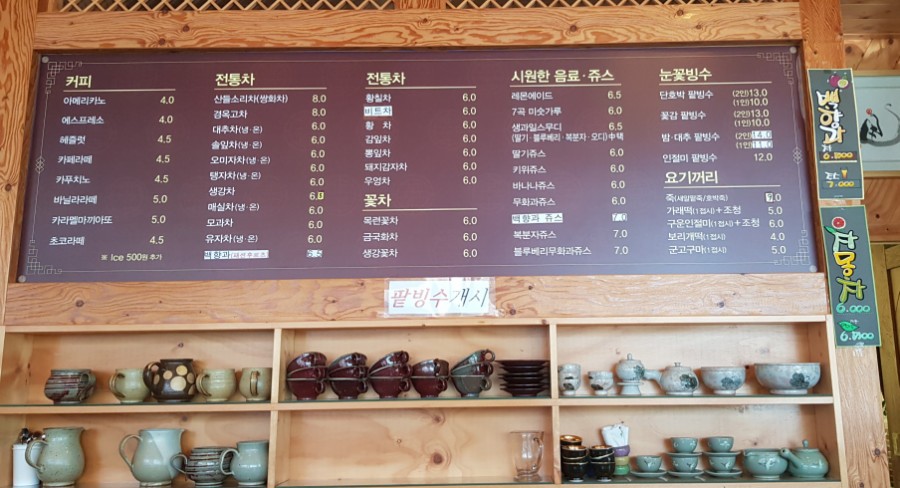 커피
아메리카노 4.0
에스프레소 4.0
헤즐럿 4.5
카페라떼 4.5
카푸치노 4.5
바닐라라떼 5.0
카라멜마끼아또 5.0
초코라떼 4.5
※ Ice 500원 추가
전통차
산들소리차(쌍화차) 8.0
경옥고차 8.0
대추차(냉·온) 6.0
솔잎차(냉·온) 6.0
오미자차(냉·온) 6.0
탱자차(냉·온) 6.0
생강차 6.0
매실차(냉·온) 6.0
모과차 6.0
유자차(냉·온) 6.0
백향과(패션푸르츠) 6.5
전통차
황칠차 6.0
비트차 6.0
황 차 6.0
감잎차 6.0
뽕잎차 6.0
돼지감자차 6.0
우엉차 6.0
꽃차
목련꽃차 6.0
금국화차 6.0
생강꽃차 6.0
시원한 음료·쥬스
레몬에이드 6.5
7곡 미숫가루 6.0
생과일스무디 6.5
(딸기·블루베리·복분자·오디)中택
딸기쥬스 6.0
키위쥬스 6.0
바나나쥬스 6.0
무화과쥬스 6.0
백향과 쥬스 7.0
복분자쥬스 7.0
블루베리무화과쥬스 7.0
눈꽃빙수
단호박 팥빙수 (2인)13.0
(1인)10.0
꽃감 팥빙수 (2인)13.0
(1인)10.0
밤·대추 팥빙수 (2인)14.0
(1인)11.0
인절미 팥빙수 12.0
요기꺼리
죽(새알팥죽/호박죽) 9.0
가래떡(1접시)+조청 5.0
구운인절미(1접시)+조청 6.0
보리개떡(1접시) 4.0
군고구마(1접시) 5.0
팥빙수개시
백향과
쥬스
7.000